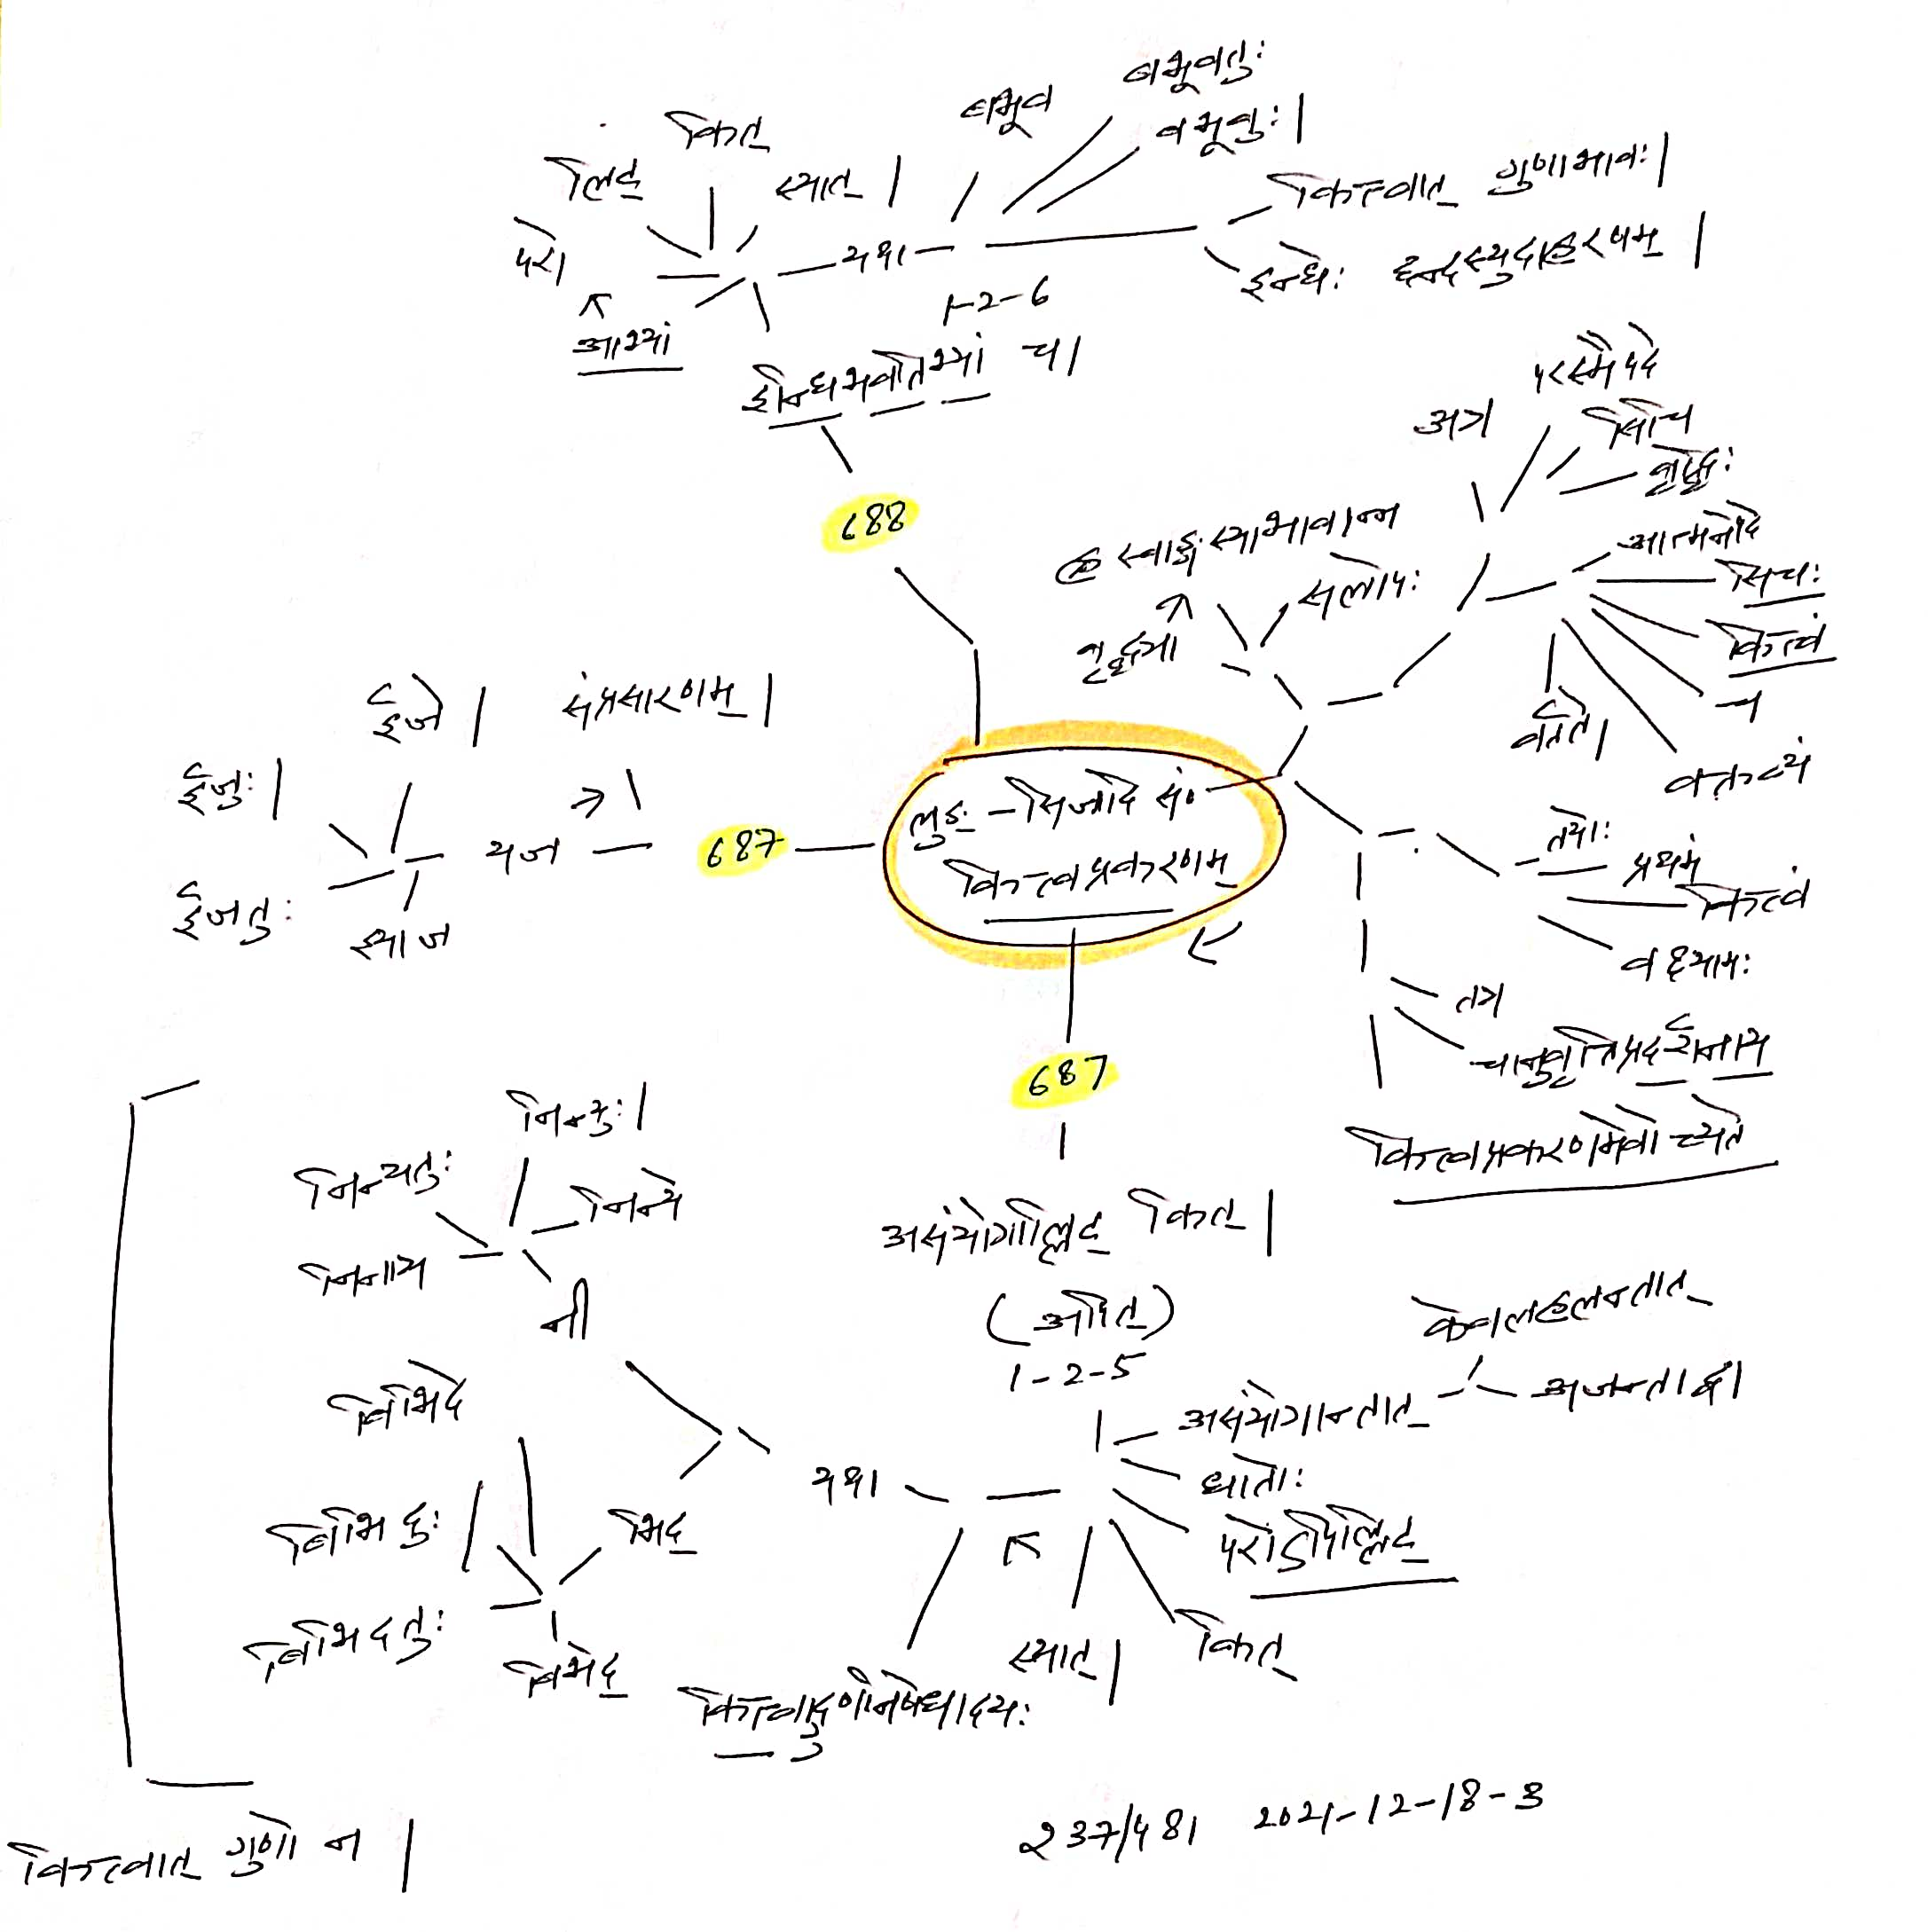 बभूव
बभूवतुः
बभूवुः।
किति
लिट्
स्यात्।
परो
आभ्यां
यथा
कित्त्वात् गुणाभावः।
इन्धेः
1-2-6
इन्धिभवतिभ्यां च।
688
अत्र
परस्मैपदे
सिचि
वृद्धिः
आत्मनेपदे
सिचः
कित्त्वं
च
वक्तव्यं
वर्तते।
ह्रस्वाङ्गस्याभावान्न
सलोपः
वृद्ध्या
ईजे।
संप्रसारणम्।
ईजुः।
ईजतुः
इयाज
यज
687
लुङः - सिजादि सं०
कित्त्वप्रकरणम्
तयोः
प्रथमं
कित्त्वं
वक्ष्यामः
तत्र
चानुवृत्तिप्रदर्शनाय
कित्त्वप्रकरणमेवोच्यते
687
असंयोगाल्लिट् कित्।
(अपित्)
1-2-5
असंयोगान्तात्
केवलहलन्तात्
अजन्ताद्वा
धातोः
परोऽपिल्लिट्
कित्
स्यात्।
कित्त्वाद्गुणनिषेधादयः
यथा
निन्युः।
निन्यतुः
निन्ये
निनाय
नी
बिभिदे
बिभिदुः
बिभिदतुः
बिभेद
भिद्
कित्त्वात् गुणो न।
237/481 2021-12-18-3